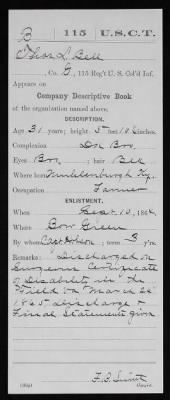 B | 115 | U.S.C.T.
Thos L. Bell
, Co. G, 115 Reg't U. S. Col'd Inf.
Appears on
Company Descriptive Book
of the organization named above.
DESCRIPTION.
Age 31 years; height 5 feet 10 inches.
Complexion Dk Bro.
Eyes Bro; hair Blk
Where born Muhlenburgh Ky.
Occupation Farmer
ENLISTMENT.
When Sept. 10, 1864.
Where Bow Green
By whom Capt. ; term 3 y'rs.
Remarks: Discharged on
Surgeons Certificate
of Disability
March 26
1865 discharge &
Final Statements given
Copyist.